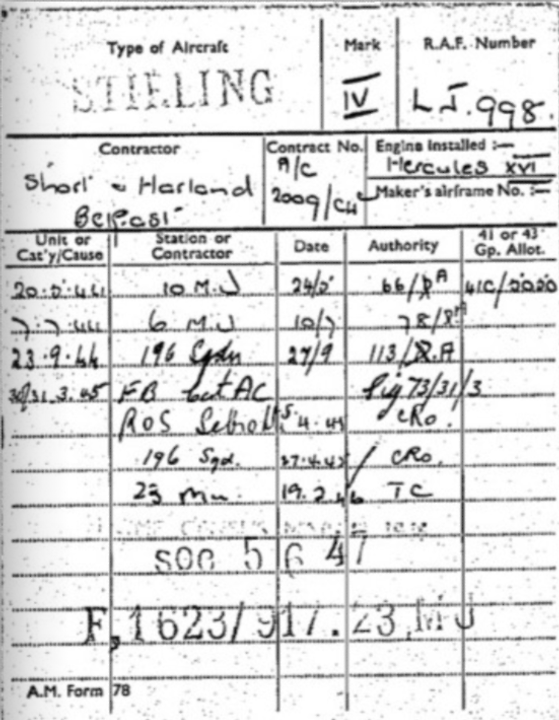 Type of Aircraft Mark R.A.F. Number
STIRLING IV LJ.998.
Contractor Contract No. Engine Installed :—
Short & Harland A/C Hercules XVI
Belfast 2009/C4 Maker's airframe No. :—
Unit or Cat'y/Cause Station or Contractor Date Authority 41 or 43 Gp. Allot.
10 M.U 66/ 41C/
7.7.44 6 M.U 10/7 78/
23.9.44 196 Sqdn 27/9 113/ A
30/31.3.45 FB Cat AC Sig 73/31/3
ROS 4.45 CRO.
196 Sqd. 27.4.45 CRO.
23 MU. 19.2.46 TC
SOC 5 6 47
F.1623/917.23.MU
A.M. Form 78